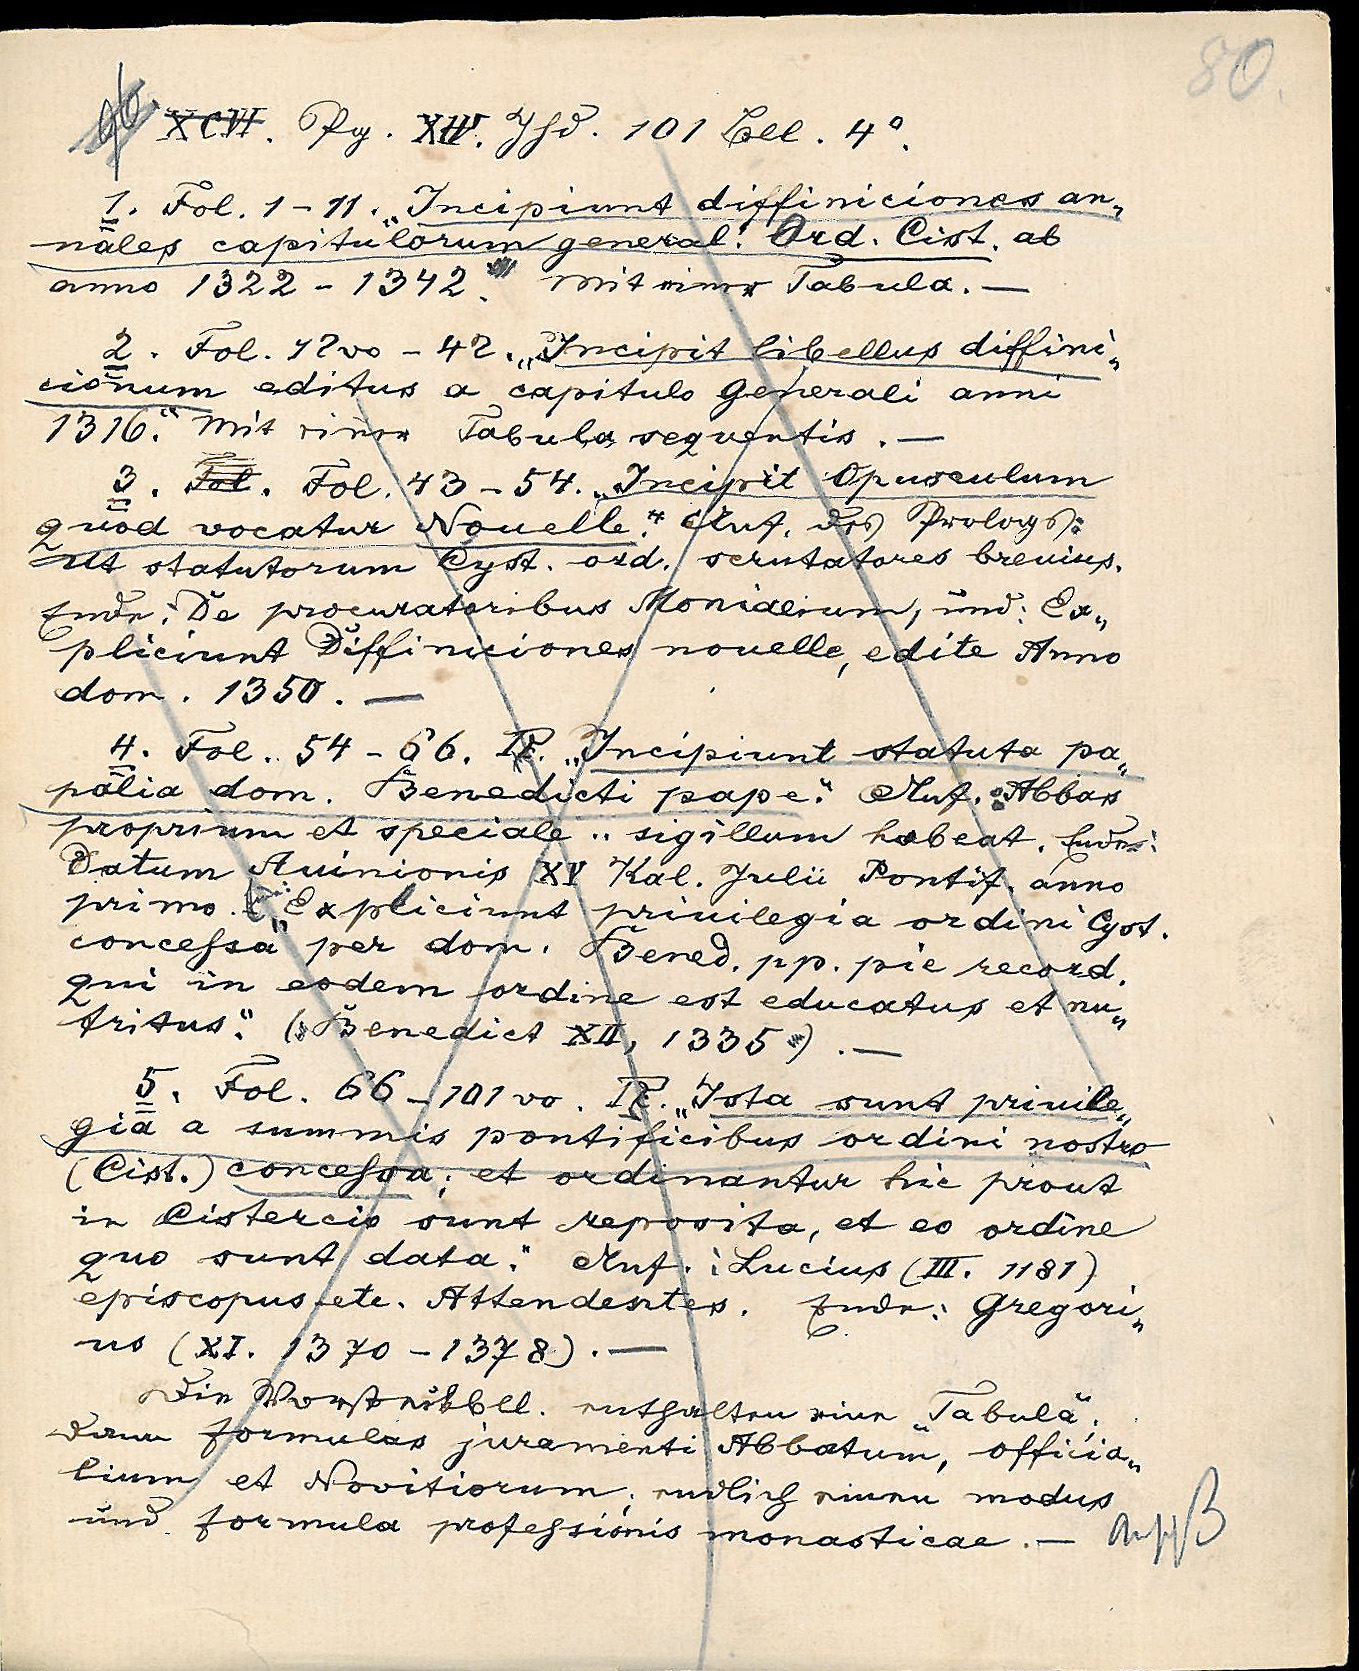 80.
XCVI. Pg. XIV. Jhd. 101 Bll. 4°.
1. Fol. 1-11. „Incipiunt diffiniciones an„
nales capitulorum general. Ord. Cist. ab
anno 1322 - 1342." Mit einer Tabula. —
2. Fol. 12vo - 42. „Incipit libellus diffini„
cionum editus a capitulo generali anni
1316." Mit einer Tabula sequentis. —
3. Fol. Fol. 43 - 54. „Incipit Opusculum
quod vocatur Nouelle." Anf. des Prologs:
Ut statutorum Cyst. ord. scrutatores breuius.
Ende: De procuratoribus Monialium, und: Ex„
pliciunt Diffiniciones nouelle, edite Anno
dom. 1350. —
4. Fol. 54 - 66. R. „Incipiunt statuta pa„
palia dom. Benedicti pape." Anf.: Abbas
proprium et speciale .. sigillum habeat. Ende:
Datum Auinionis XV Kal. Julii Pontif. anno
primo. „Expliciunt priuilegia ordini Cyst.
concessa per dom. Bened. pp. pie record.
qui in eodem ordine est educatus et nu„
tritus." (Benedict XII, 1335) . —
5. Fol. 66 - 101vo. R. „Ista sunt priuile„
gia a summis pontificibus ordini nostro
(Cist.) concessa; et ordinantur hic prout
in Cistercio sunt reposita, et eo ordine
quo sunt data." Anf.: Lucius (III. 1181)
episcopus etc. Attendentes. Ende: Gregori„
us (XI. 1370 - 1378). —
Die Vorsteckbll. enthalten eine „Tabula",
dann formulas juramenti Abbatum, officia„
lium et Novitiorum; endlich einen modus
und formula professionis monasticae. —